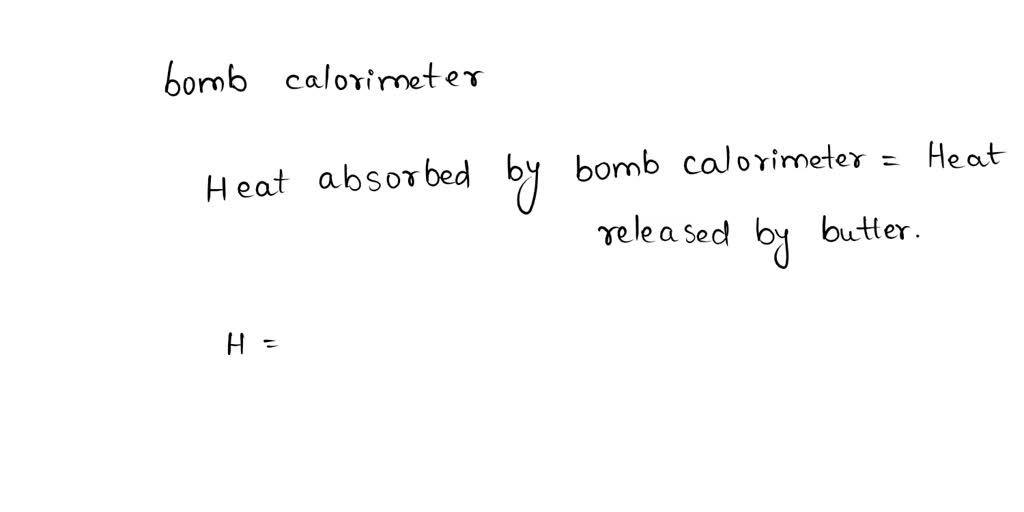 bomb calorimeter
Heat absorbed by bomb calorimeter = Heat
released by butter.
H =